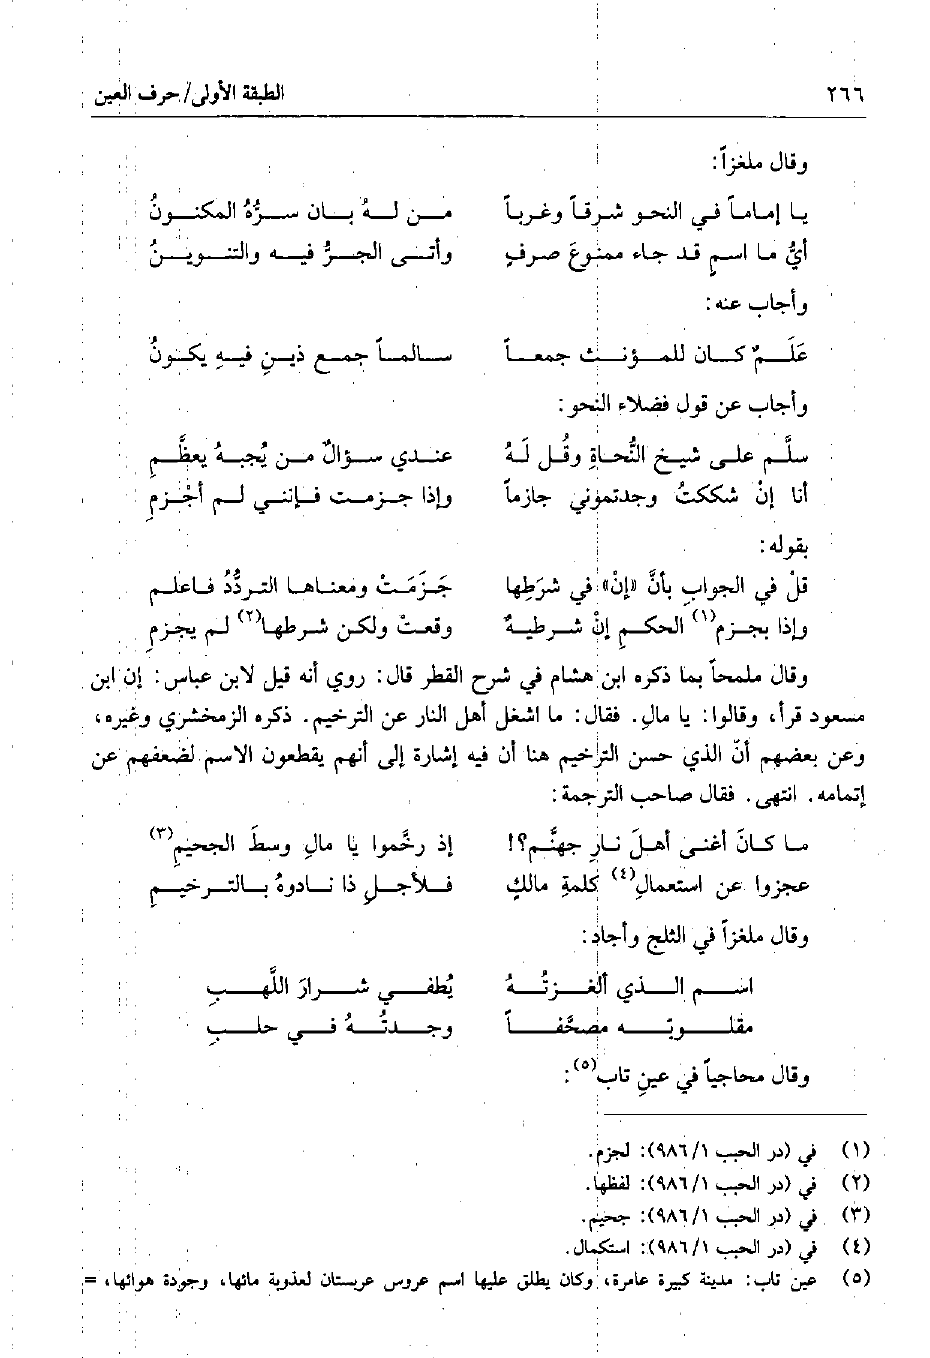 ٢٦٦ الطبقة الأولى/ حرف العين
وقال ملغزاً:
يا إماماً في النحو شرقاً وغرباً من لهُ بان سرُّهُ المكنونُ
أيُّ ما اسمٍ قد جاء ممنوعَ صرفٍ وأتى الجرُّ فيه والتنوينُ
وأجاب عنه:
عَلَمٌ كان للمؤنث جمعاً سالماً جمع ذينِ فيهِ يكونُ
وأجاب عن قول فضلاء النحو:
سلَّم على شيخ النُّحاةِ وقُل لَهُ عندي سؤالٌ من يُجبهُ يعظَّمِ
أنا إنْ شككتُ وجدتموني جازماً وإذا جزمت فإنني لم أجْزمِ
بقوله:
قلْ في الجوابِ بأنَّ «إنْ» في شرَطِها جَزَمَتْ ومعناها التردُّدُ فاعلمِ
وإذا بجزم(١) الحكمِ إنْ شرطيةٌ وقعتْ ولكن شرطها(٢) لم يجزمِ
وقال ملمحاً بما ذكره ابن هشام في شرح القطر قال: روي أنه قيل لابن عباس: إن ابن
مسعود قرأ، وقالوا: يا مالِ. فقال: ما اشغل أهل النار عن الترخيم. ذكره الزمخشري وغيره،
وعن بعضهم أنّ الذي حسن الترخيم هنا أن فيه إشارة إلى أنهم يقطعون الاسم لضعفهم عن
إتمامه. انتهى. فقال صاحب الترجمة:
ما كانَ أغنى أهلَ نارِ جهنَّمٍ؟! إذ رخَّموا يا مالِ وسطَ الجحيمِ(٣)
عجزوا عن استعمالِ(٤) كلمةِ مالكٍ فلأجلِ ذا نادوهُ بالترخيمِ
وقال ملغزاً في الثلج وأجاد:
اسم الذي ألغزتُهُ يُطفي شرارَ اللَّهبِ
مقلوبُه مصحَّفاً وجدتُهُ في حلبِ
وقال محاجياً في عينِ تاب(٥):
(١) في (در الحبب ١/ ٩٨٦): لجزم.
(٢) في (در الحبب ١/ ٩٨٦): لفظها.
(٣) في (در الحبب ١/ ٩٨٦): جحيم.
(٤) في (در الحبب ١/ ٩٨٦): استكمال.
(٥) عين تاب: مدينة كبيرة عامرة، وكان يطلق عليها اسم عروس عربستان لعذوبة مائها، وجودة هوائها، =